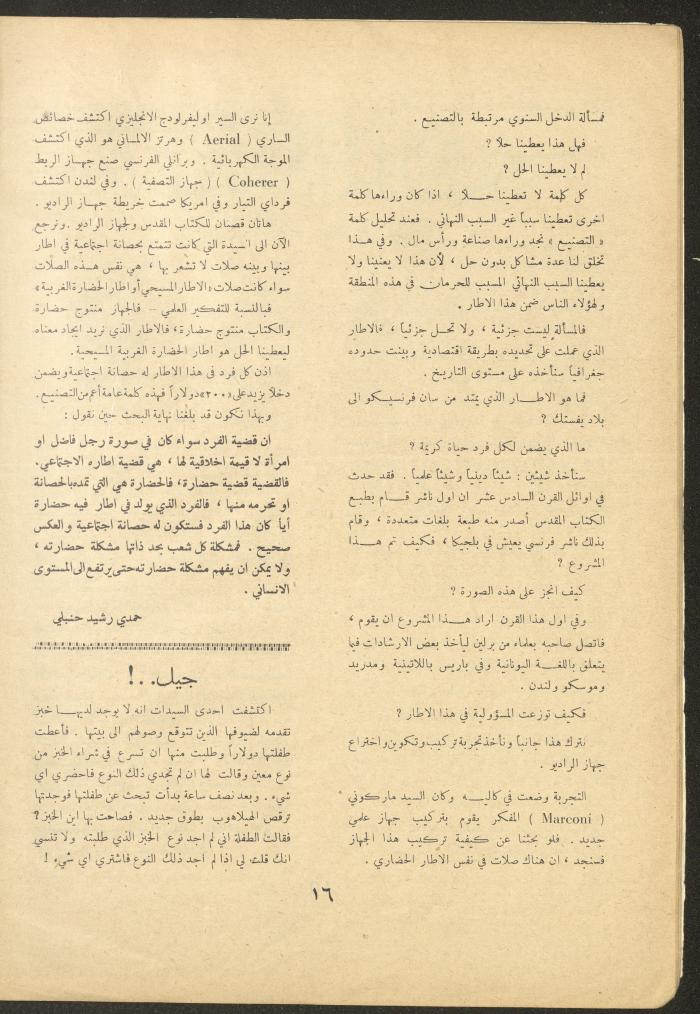 فمسألة الدخل السنوي مرتبطة بالتصنيع .
فهل هذا يعطينا حلاً ؟
لم لا يعطينا الحل ؟
كل كلمة لا تعطينا حـلاً ، اذا كان وراءها كلمة
اخرى تعطينا سبباً غير السبب النهائي . فعند تحليل كلمة
« التصنيع » نجد وراءها صناعة ورأس مال . وفي هـذا
تخلق لنا عدة مشاكل بدون حل ، لأن هذا لا يعنينا ولا
يعطينا السبب النهائي المسبب للحرمان في هذه المنطقة
ولهؤلاء الناس ضمن هذا الاطار .
فالمسألة ليست جزئية ، ولا تحـل جزئياً ، فالاطار
الذي عملت على تحديده بطريقة اقتصادية وبينت حدوده
جغرافياً سنأخذه على مستوى التاريخ .
فما هو الاطـار الذي يمتد من سان فرنسيكو الى
بلاد يفستك ؟
ما الذي يضمن لكل فرد حياة كريمة ؟
سنأخذ شيئين : شيئاً دينياً وشيئاً علمياً . فقد حدث
في اوائل القرن السادس عشر ان اول ناشر قـام بطبع
الكتاب المقدس أصدر منه طبعة بلغات متعددة ، وقام
بذلك ناشر فرنسي يعيش في بلجيكا ، فكيف تم هـذا
المشروع ؟
كيف انجز على هذه الصورة ؟
وفي اول هذا القرن اراد هـذا المشروع ان يقوم ،
فاتصل صاحبه بعلماء من برلين ليأخذ بعض الارشادات فيما
يتعلق باللغـة اليونانية وفي باريس باللاتينية ومدريد
وموسكو ولندن .
فكيف توزعت المسؤولية في هذا الاطار ؟
نترك هذا جانباً ونأخذ تجربة تركيب وتكوين واختراع
جهاز الراديو .
التجربة وضعت في كاليـه وكان السيد ماركوني
( Marconi ) المفكر يقوم بتركيب جهاز علمي
جديد . فلو بحثنا عن كيفية تركيب هذا الجهاز
فسنجد ، ان هناك صلات في نفس الاطار الحضاري .
إنا نرى السير اوليفرلودج الانجليزي اكتشف خصائص
الساري ( Aerial ) وهرتز الالماني هو الذي اكتشف
الموجة الكهربائية . وبرانلي الفرنسي صنع جهـاز الربط
( Coherer ) ( جهاز التصفية ) . وفي لندن اكتشف
فرداي التيار وفي امريكا صممت خريطة جهـاز الراديو .
هاتان قصتان للكتاب المقدس ولجهاز الراديو . ونرجع
الآن الى السيدة التي كانت تتمتع بحصانة اجتماعية في اطار
بينها وبينه صلات لا تشعر بها ، هي نفس هـذه الصلات
سواء كانت صلات «الاطار المسيحي أو اطار الحضارة الغربية»
فبالنسبة للتفكير العلمي – فالجهاز منتوج حضارة
والكتاب منتوج حضارة ، فالاطار الذي نريد ايجاد معناه
ليعطينا الحل هو اطار الحضارة الغربية المسيحية .
اذن كل فرد في هذا الاطار له حصانة اجتماعية ويضمن
دخلاً يزيد على «٢٠٠» دولاراً فهذه كلمة عامة أعم من التصنيع .
وبهذا نكون قد بلغنا نهاية البحث حين نقول :
ان قضية الفرد سواء كان في صورة رجل فاضل او
امرأة لا قيمة اخلاقية لها ، هي قضية اطاره الاجتماعي .
فالقضية قضية حضارة ، فالحضارة هي التي تمده بالحصانة
او تحرمه منها ، فالفرد الذي يولد في اطار فيه حضارة
أياً كان هذا الفرد فستكون له حصانة اجتماعية والعكس
صحيح . فمشكلة كل شعب بحد ذاتها مشكلة حضارته ،
ولا يمكن ان يفهم مشكلة حضارته حتى يرتفع الى المستوى
الانساني .
حمدي رشيد حنبلي
جيل . . !
اكتشفت احدى السيدات انه لا يوجد لديهـا خبز
تقدمه لضيوفها الذين تتوقع وصولهم الى بيتها . فأعطت
طفلتها دولاراً وطلبت منها ان تسرع في شراء الخبز من
نوع معين وقالت لها ان لم تجدي ذلك النوع فاحضري اي
شيء . وبعد نصف ساعة بدأت تبحث عن طفلتها فوجدتها
ترقص الهيلاهوب بطوق جديد . فصاحت بها اين الخبز ؟
فقالت الطفلة اني لم اجد نوع الخبز الذي طلبته ولا تنسي
انك قلت لي اذا لم اجد ذلك النوع فاشتري اي شيء !
١٦